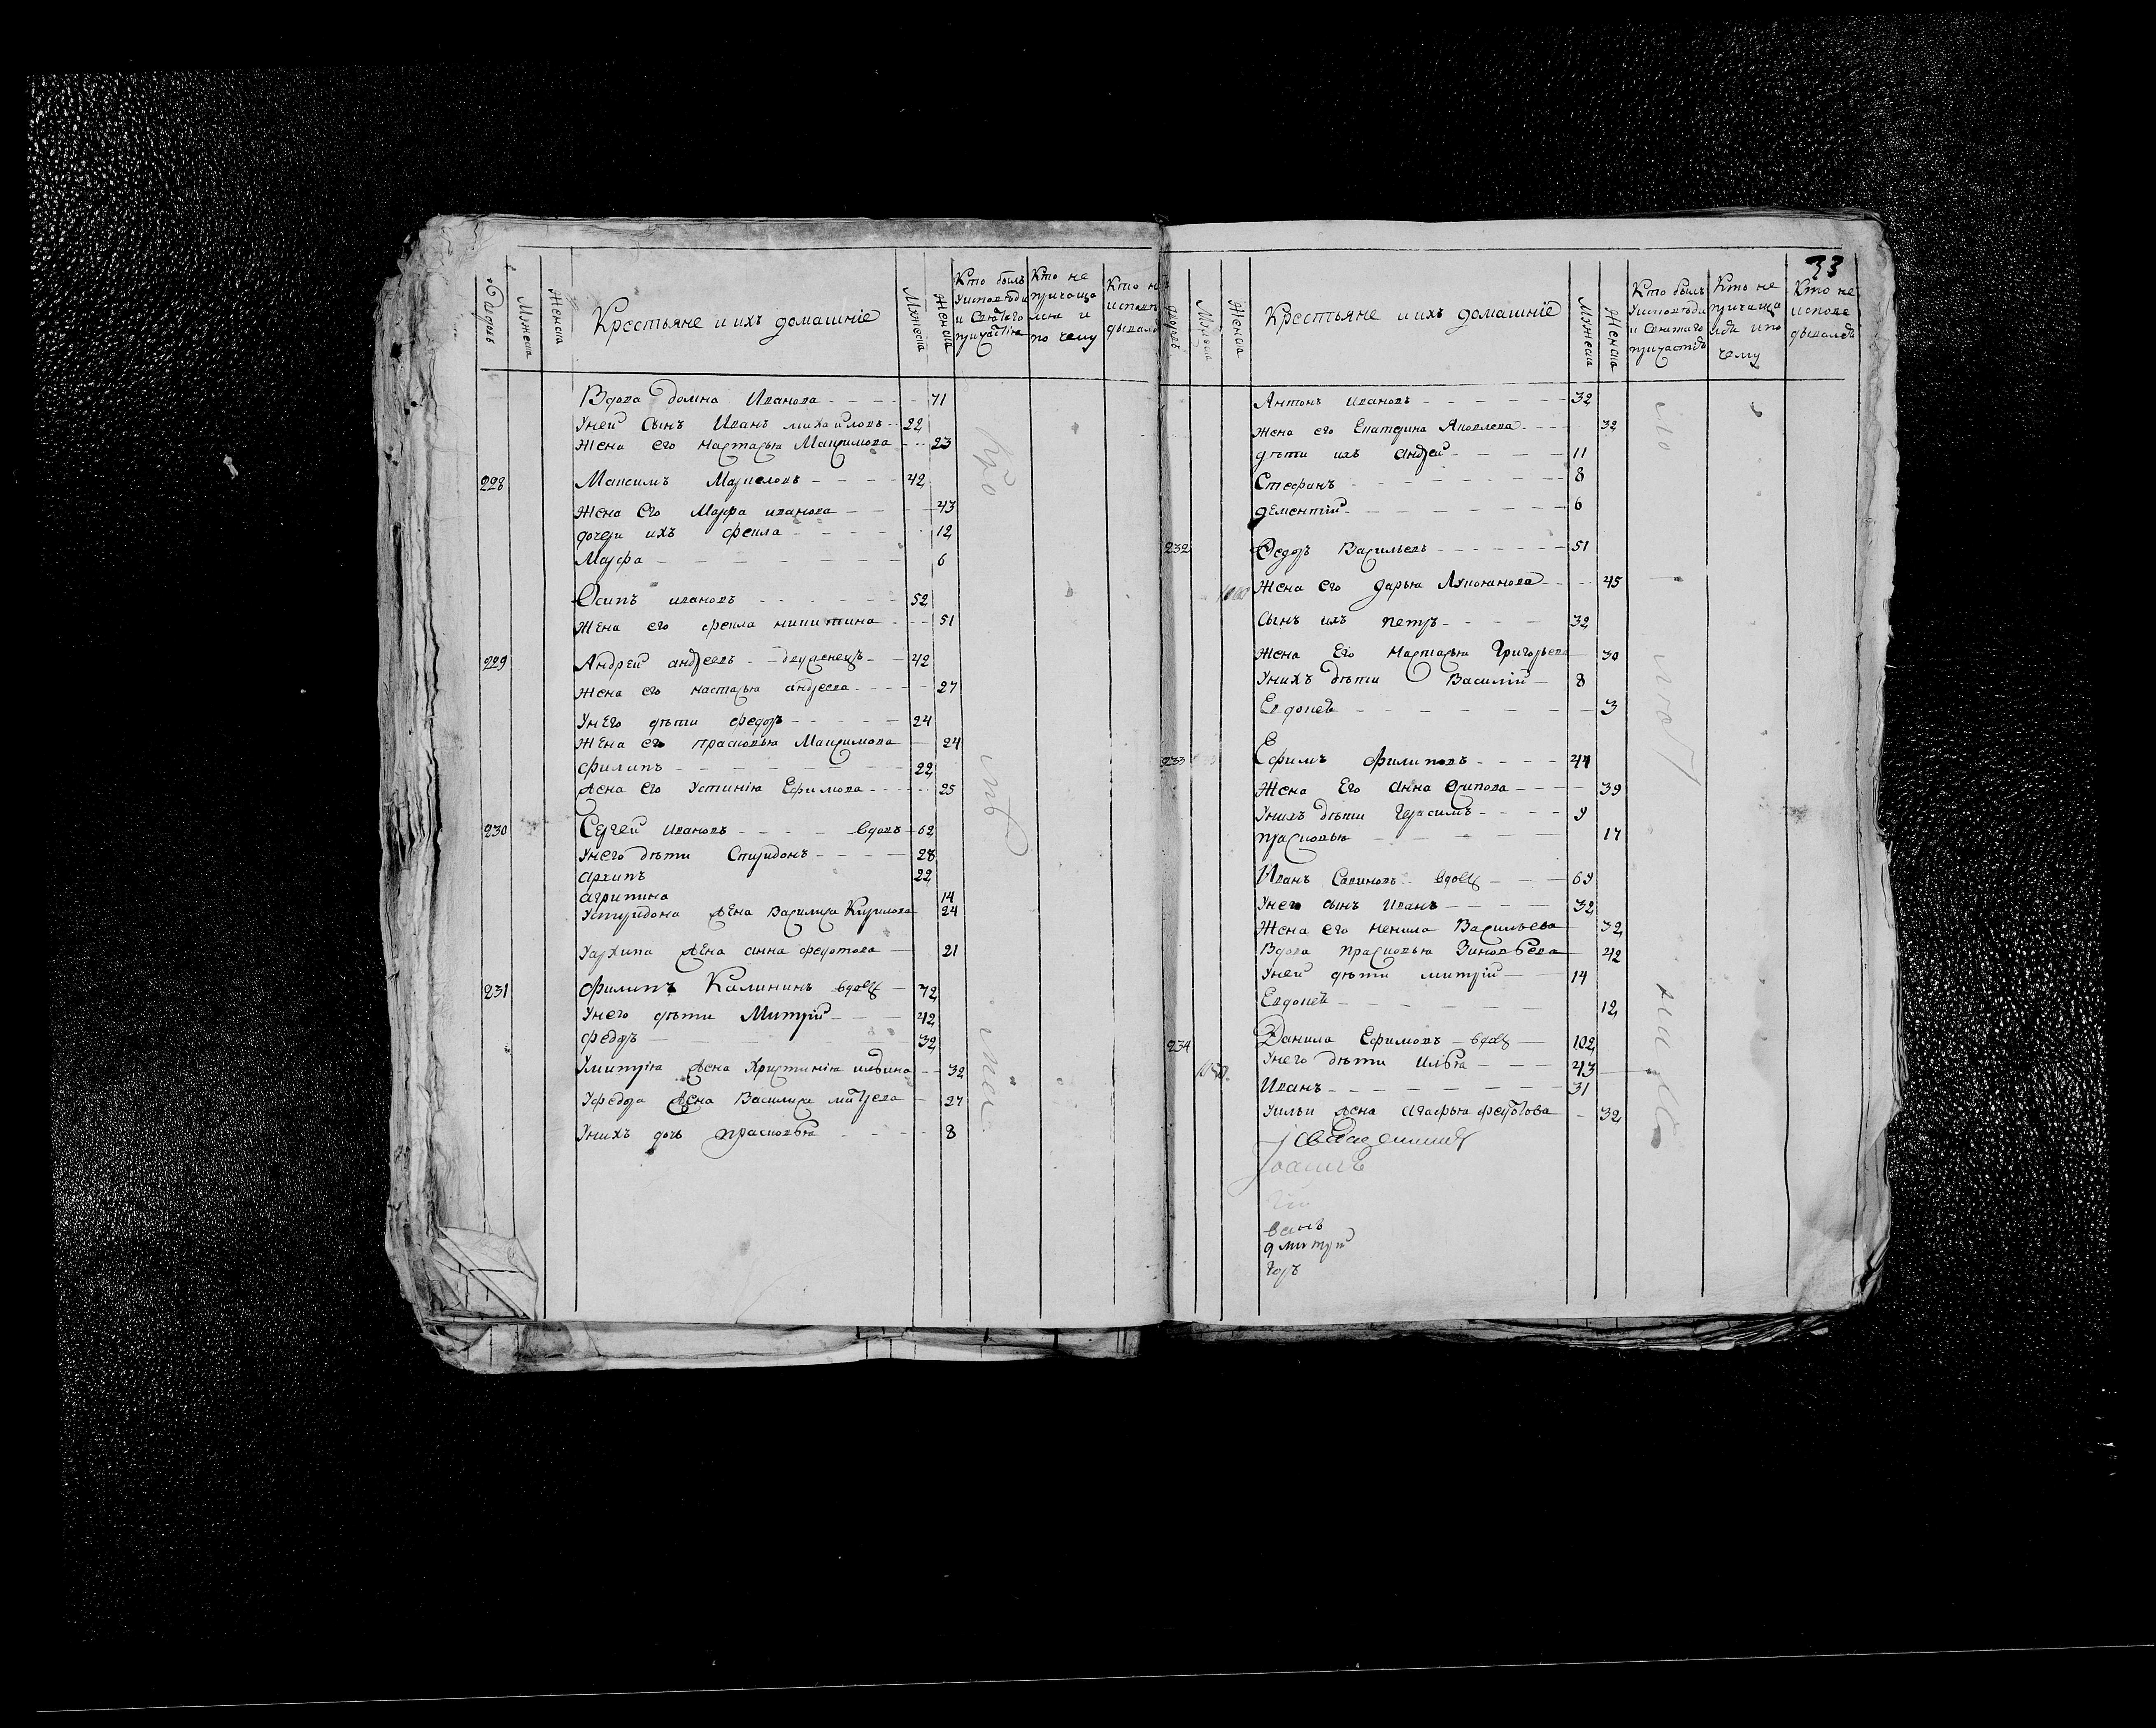 Мужеска
Женска
Крестьяне и ихъ домашніе
Мужеска
Женска
Кто былъ
у исповѣди
и святаго
причастія
Кто не
причаща
лся и
по чему
Кто не
исповѣ
дывался
Вдова домна Иванова 71
У ней сынъ Иванъ михайловъ 22
Жена его настасья Максимова 23
228 Максимъ Маркеловъ 42
Жена его Марфа иванова 43
дочери ихъ фекла 12
Марфа 6
Осипъ ивановъ 52
Жена его фекла никитина 51
229 Андрей андреевъ двуженецъ 42
Жена его настасья андреева 27
У него дѣти федоръ 24
Жена его прасковья Максимова 24
филипъ 22
Жена его Устинія Ефимова 25
230 Сергей ивановъ вдовъ 62
У него дѣти Спиридонъ 28
архипъ 22
агрипина 14
У спиридона жена Василиса Кирилова 24
У архипа жена анна федотова 21
231 Филипъ Калининъ вдовецъ 72
У него дѣти Митрій 42
федоръ 32
У митрія жена Христинія ильина 32
У федора жена Василиса 27
У нихъ дочь прасковья 8
33
дворовъ
Мужеска
Женска
Крестьяне и ихъ домашніе
Мужеска
Женска
Кто былъ
у исповѣди
и святаго
причастія
Кто не
причаща
лся и по
чему
Кто не
испове
дывался
Антонъ ивановъ 32
жена его Екатерина Яковлева 32
дѣти ихъ андрей 11
Стефанъ 8
дементий 6
232 Федоръ Васильевъ 51
Жена его дарья 45
Сынъ ихъ петръ 32
Жена Его Настасья Григорьева 30
У нихъ дѣти Василій 8
Евдокея 3
233 Ефимъ филиповъ 44
Жена Его анна осипова 39
У нихъ дѣти Герасимъ 9
прасковья 17
Иванъ Савиновъ вдовецъ 69
У него сынъ Иванъ 32
Жена его ненила Васильева 32
Вдова прасковья Зиновьева 42
У ней дѣти митрій 14
Евдокея 12
234 Данила Ефимовъ вдовецъ 102
У него дѣти Илья 43
Иванъ 31
У ильи жена агафья федотова 32
Священникъ
Іоаннъ
дмитрий